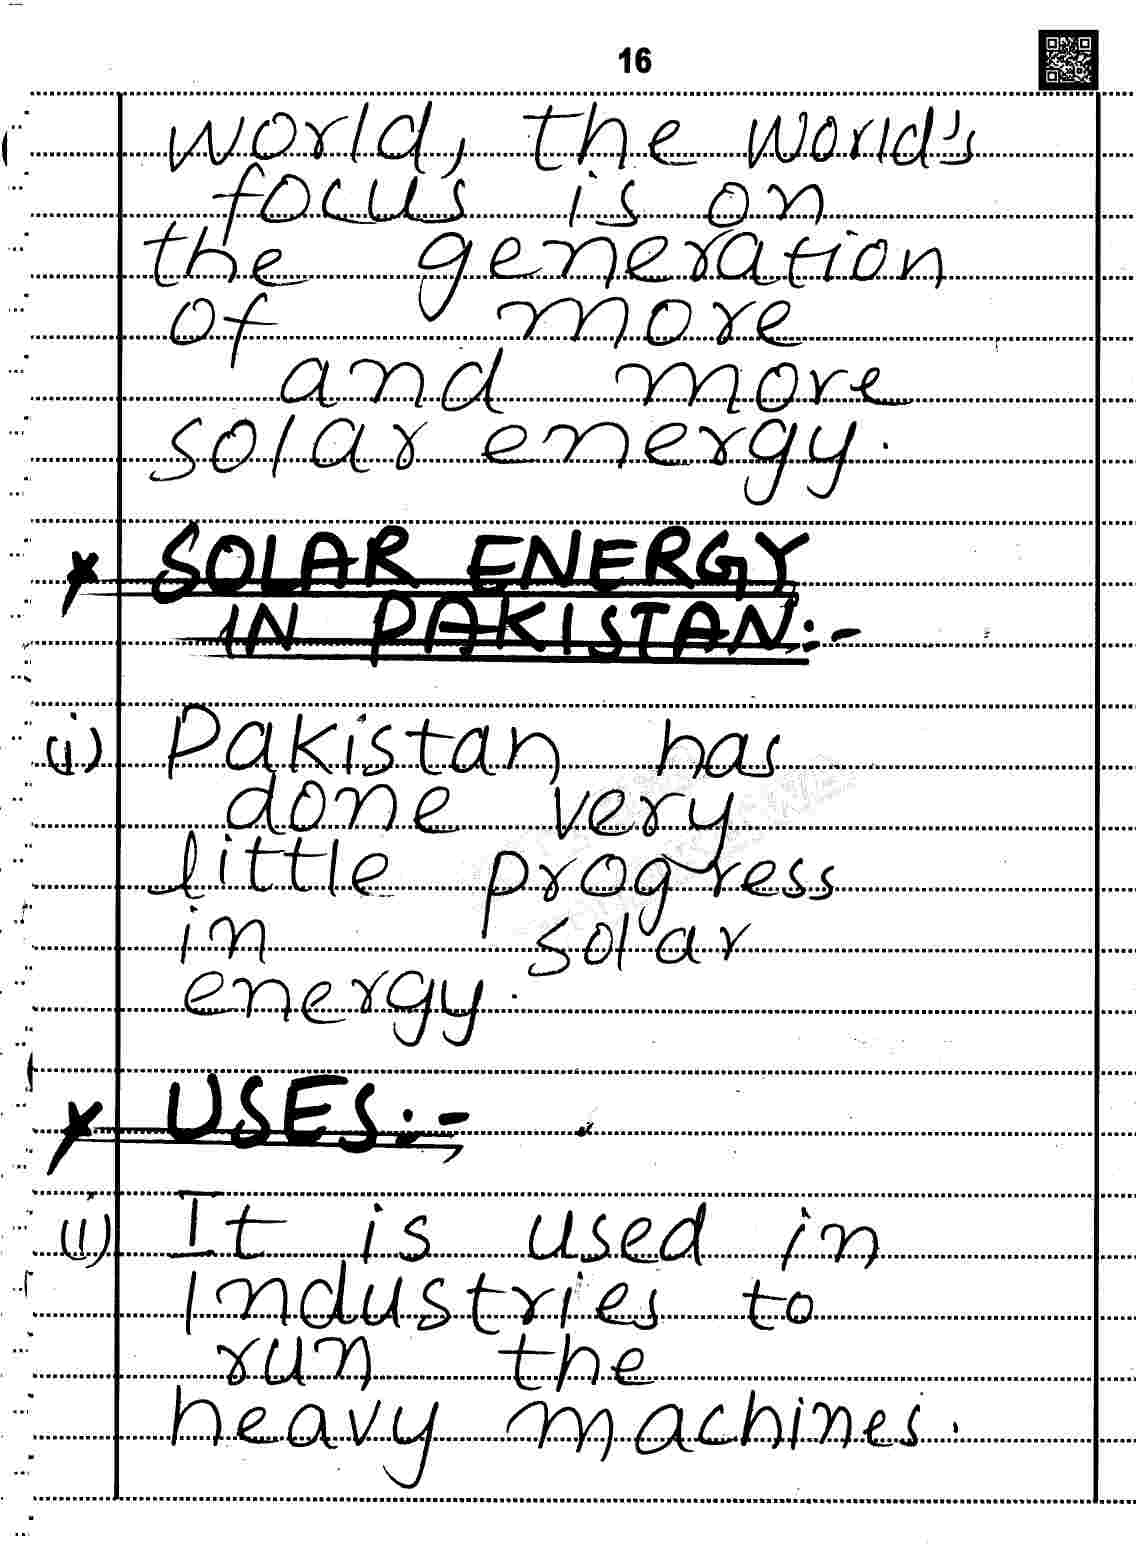 16
world, the world's
focus is on
the generation
of more
and more
solar energy.
* SOLAR ENERGY
IN PAKISTAN:-
(i) Pakistan has
done very
little progress
in solar
energy.
* USES:-
(i) It is used in
Industries to
run the
heavy machines.